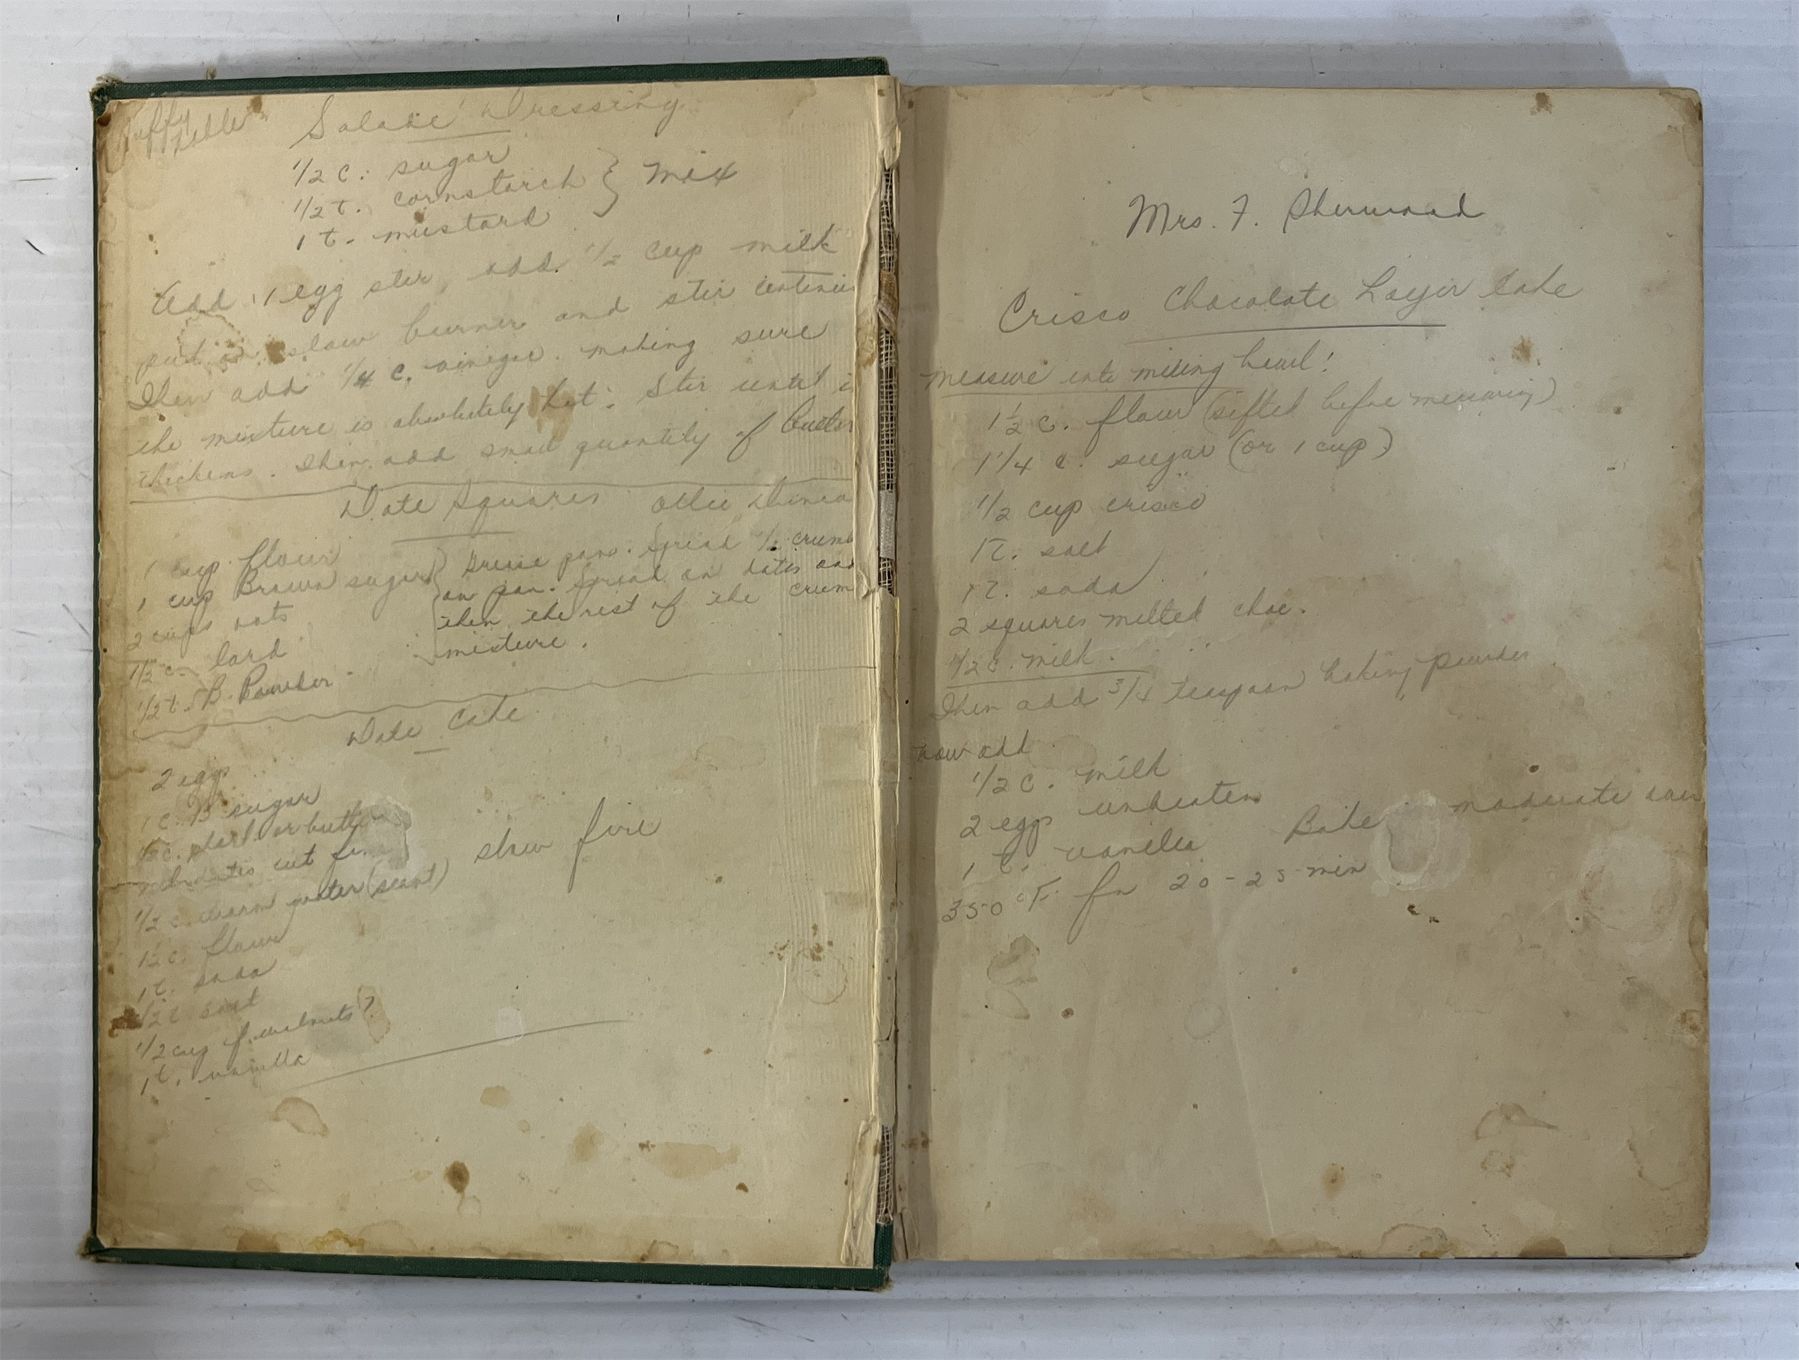 Salade Dressing
1/2 c. sugar
1/2 t. cornstarch } mix
1 t. mustard
Add 1 egg ster, add 1/2 cup milk
put on slow burner and ster
Then add 1/4 c. vinegar making sure
the mixture is absolutely hot. Ster until
thickens. Then add small quantity of
Date Squares Ollie
1 cup flour
1 cup Brown sugar
2 cups oats
lard
1/2 t. B. Powder
Grease pan. Spread 1/2 crumb
on pan. Spread on dates and
then the rest of the crum
mixture.
Date Cake
2 eggs
1 c. B sugar
1/2 c. lard or butter
dates cut
1/2 c. warm water (scant)
slow fire
1 1/2 c. flour
1 t. soda
1/2 t salt
1/2 cup walnuts?
1 t. vanilla
Mrs. F. Sherwood
Crisco Chocolate Layer Cake
Measure into mixing bowl!
1 1/2 c. flour (sifted before measuring)
1 1/4 c. sugar (or 1 cup)
1/2 cup crisco
1 t. salt
1 t. soda
2 squares melted choc.
1/2 c. milk.
Then add 3/4 teaspoon baking powder
now add
1/2 c. milk
2 eggs unbeaten
1 t. vanilla Bake moderate
350 °F. for 20-25 min